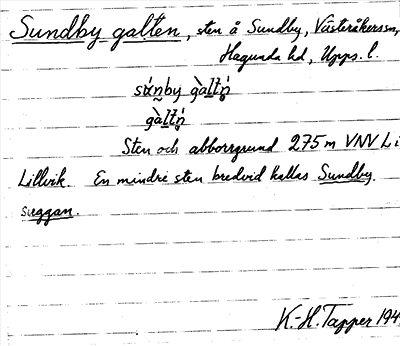 Sundby galten, sten å Sundby, Västeråkers sn,
Hagunda hd, Upps. l.
súnby gàltń
gàltń
Sten och abborrgrund 275 m VNV Li
Lillvik. En mindre sten bredvid kallas Sundby
suggan.
K.-H. Tapper 194